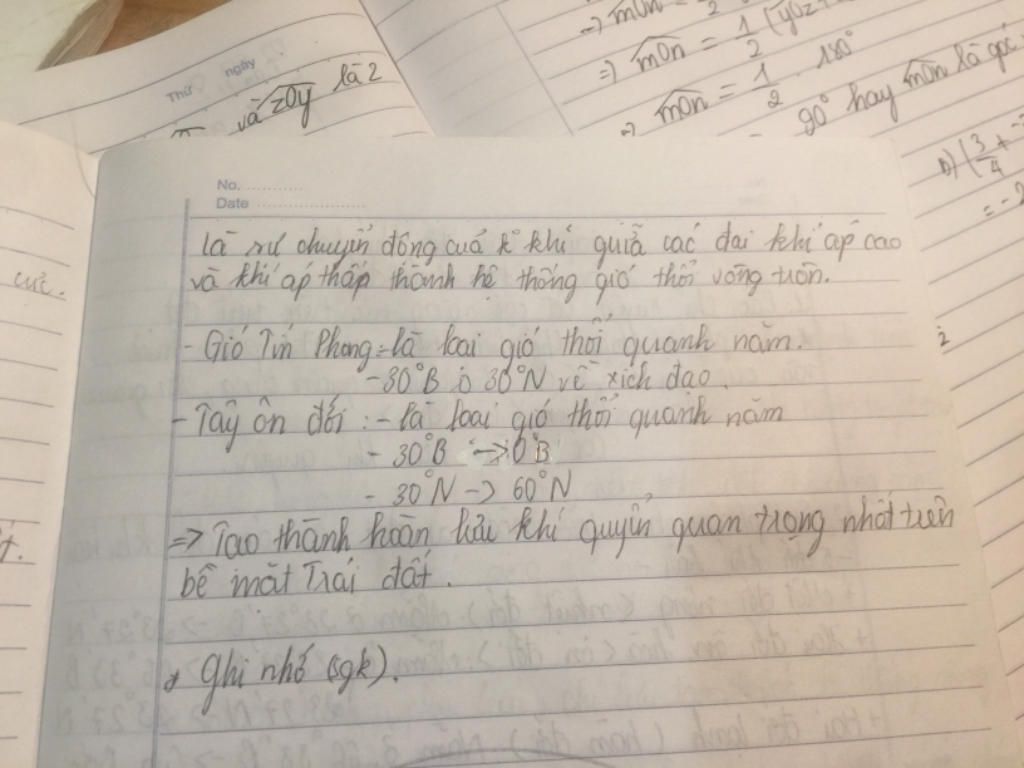 ⇒ m0n =
⇒ m0n = 1/2 (y0z +
⇒ m0n = 1/2 . 180°
= 90° hay m0n là góc
Thứ ngày
và z0y là 2
b) (3/4 +
= -2
No. ............
Date ........................
cực.
là sự chuyển động cuả k° khí giữã các đai khí áp cao
và khí áp thấp thành hệ thống gió thổi vòng tròn.
- Gió Tín Phong :- là loại gió thổi quanh năm.
- 30°B ò 30°N về xích đạo.
- Tây ôn đới : - là loại gió thổi quanh năm
- 30°B -> 0°B
- 30°N -> 60°N
=> Tạo thành hoàn lưu khí quyển quan trọng nhất trên
bề mặt Trái đất.
* Ghi nhớ (sgk).